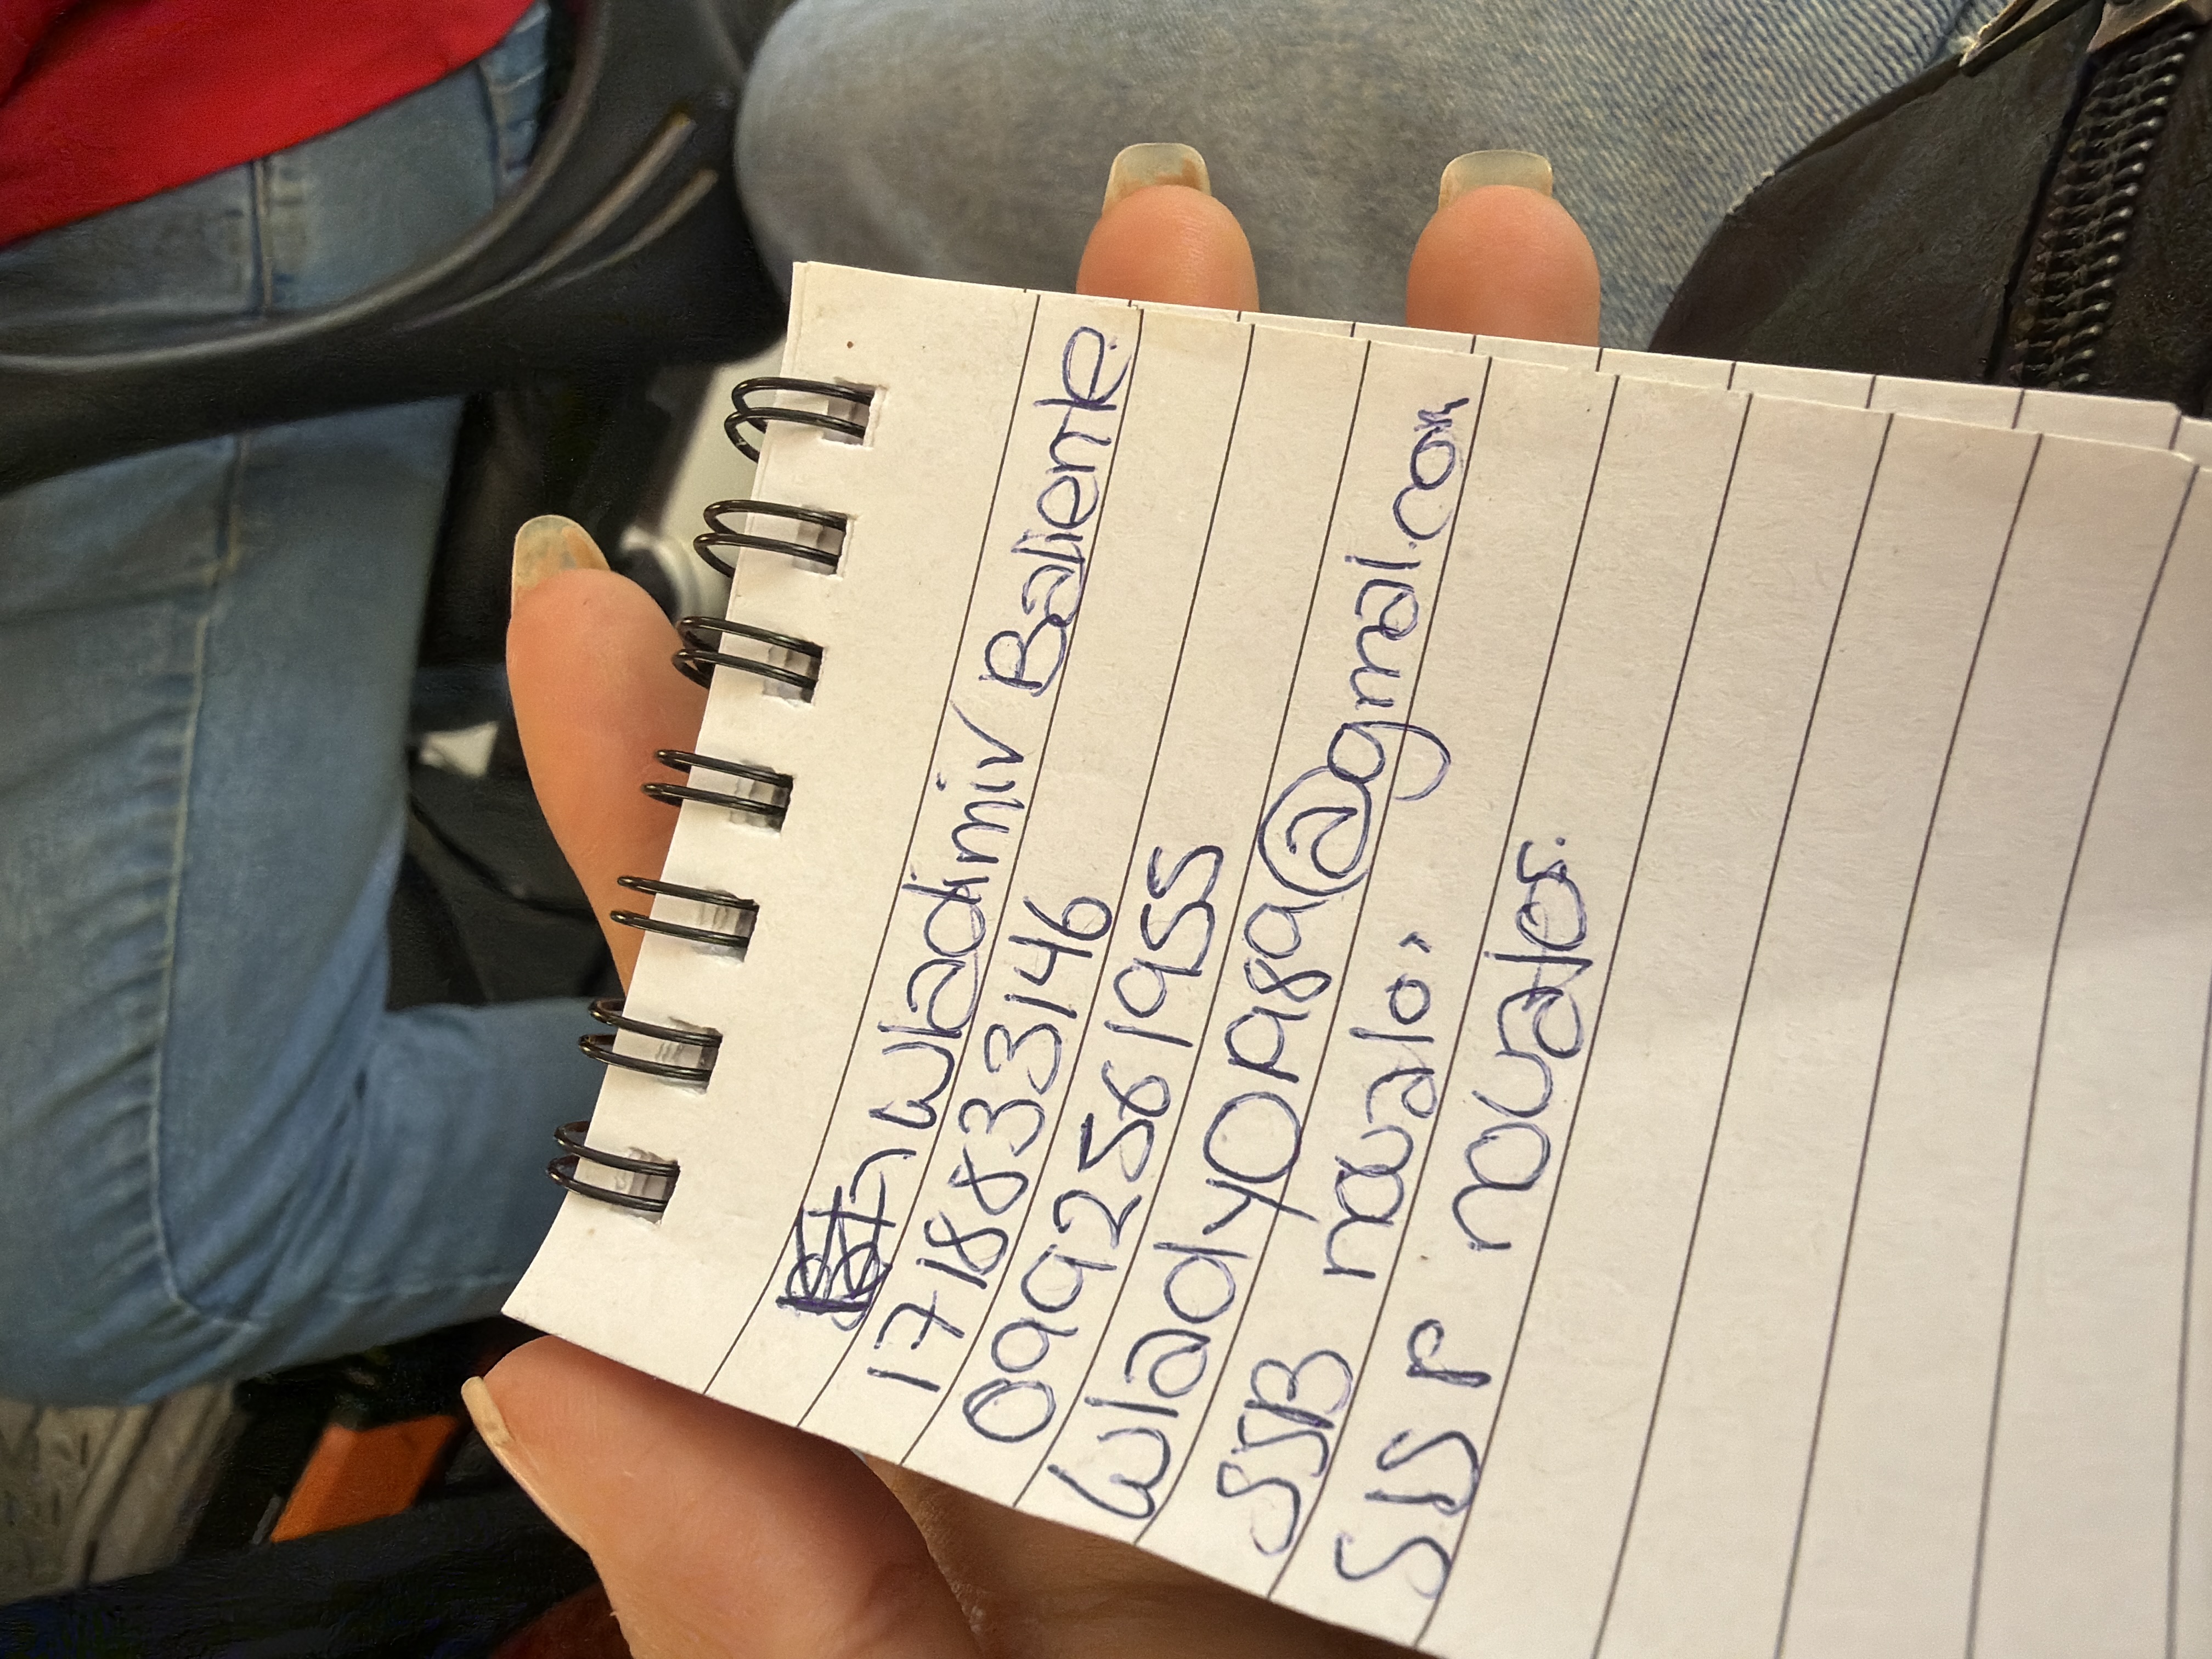 Wladimiv Baliente
1718833146
0992561955
WladyO1989@gmail.com
SSB novalos
SIS P novales.